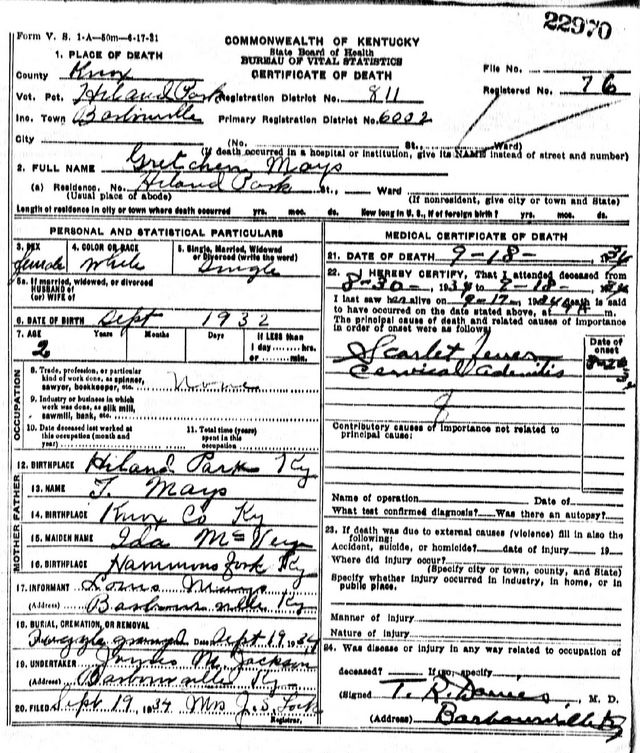 22970
Form V. S. 1-A-50m-6-17-31
COMMONWEALTH OF KENTUCKY
State Board of Health
BUREAU OF VITAL STATISTICS
CERTIFICATE OF DEATH
1. PLACE OF DEATH
County Knox
File No.
Vot. Pct. Hiland Park Registration District No. 811
Registered No. 76
Inc. Town Barbourville Primary Registration District No. 6002
City (No. St., Ward)
(If death occurred in a hospital or institution, give its NAME instead of street and number)
2. FULL NAME Gretchen Mays
(a) Residence. No. Hiland Park St., Ward
(Usual place of abode) (If nonresident, give city or town and State)
Length of residence in city or town where death occurred yrs. mos. ds. How long in U. S., if of foreign birth? yrs. mos. ds.
PERSONAL AND STATISTICAL PARTICULARS
3. SEX female
4. COLOR OR RACE White
5. Single, Married, Widowed or Divorced (write the word) Single
5a. If married, widowed, or divorced
HUSBAND of
(or) WIFE of
6. DATE OF BIRTH Sept 1932
7. AGE Years Months Days If LESS than
2 1 day....hrs.
or....min.
OCCUPATION
8. Trade, profession, or particular
kind of work done, as spinner,
sawyer, bookkeeper, etc. None
9. Industry or business in which
work was done, as silk mill,
sawmill, bank, etc.
10. Date deceased last worked at
this occupation (month and
year)
11. Total time (years)
spent in this
occupation
12. BIRTHPLACE Hiland Park Ky
FATHER
13. NAME T. Mays
14. BIRTHPLACE Knox Co Ky
MOTHER
15. MAIDEN NAME Ida
16. BIRTHPLACE Hammons Fork Ky
17. INFORMANT
(Address) Barbourville Ky
18. BURIAL, CREMATION, OR REMOVAL
Date Sept 19 1934
19. UNDERTAKER M. Jackson
(Address) Barbourville Ky
20. FILED Sept 19, 1934 Mrs J. S.
Registrar.
MEDICAL CERTIFICATE OF DEATH
21. DATE OF DEATH 9-18- 1934
22. I HEREBY CERTIFY, That I attended deceased from
8-30-, 1934 to 9-18-, 1934
I last saw her alive on 9-17-, 1934 death is said
to have occurred on the date stated above, at 9 A m.
The principal cause of death and related causes of importance
in order of onset were as follows:
Date of
onset
Scarlet Fever
Cervical adenitis
Contributory causes of importance not related to
principal cause:
Name of operation Date of
What test confirmed diagnosis? Was there an autopsy?
23. If death was due to external causes (violence) fill in also the
following:
Accident, suicide, or homicide? date of injury 19
Where did injury occur?
(Specify city or town, county, and State)
Specify whether injury occurred in industry, in home, or in
public place.
Manner of injury
Nature of injury
24. Was disease or injury in any way related to occupation of
deceased? If so, specify
(Signed T. R. Davies, M. D.
(Address) Barbourville Ky